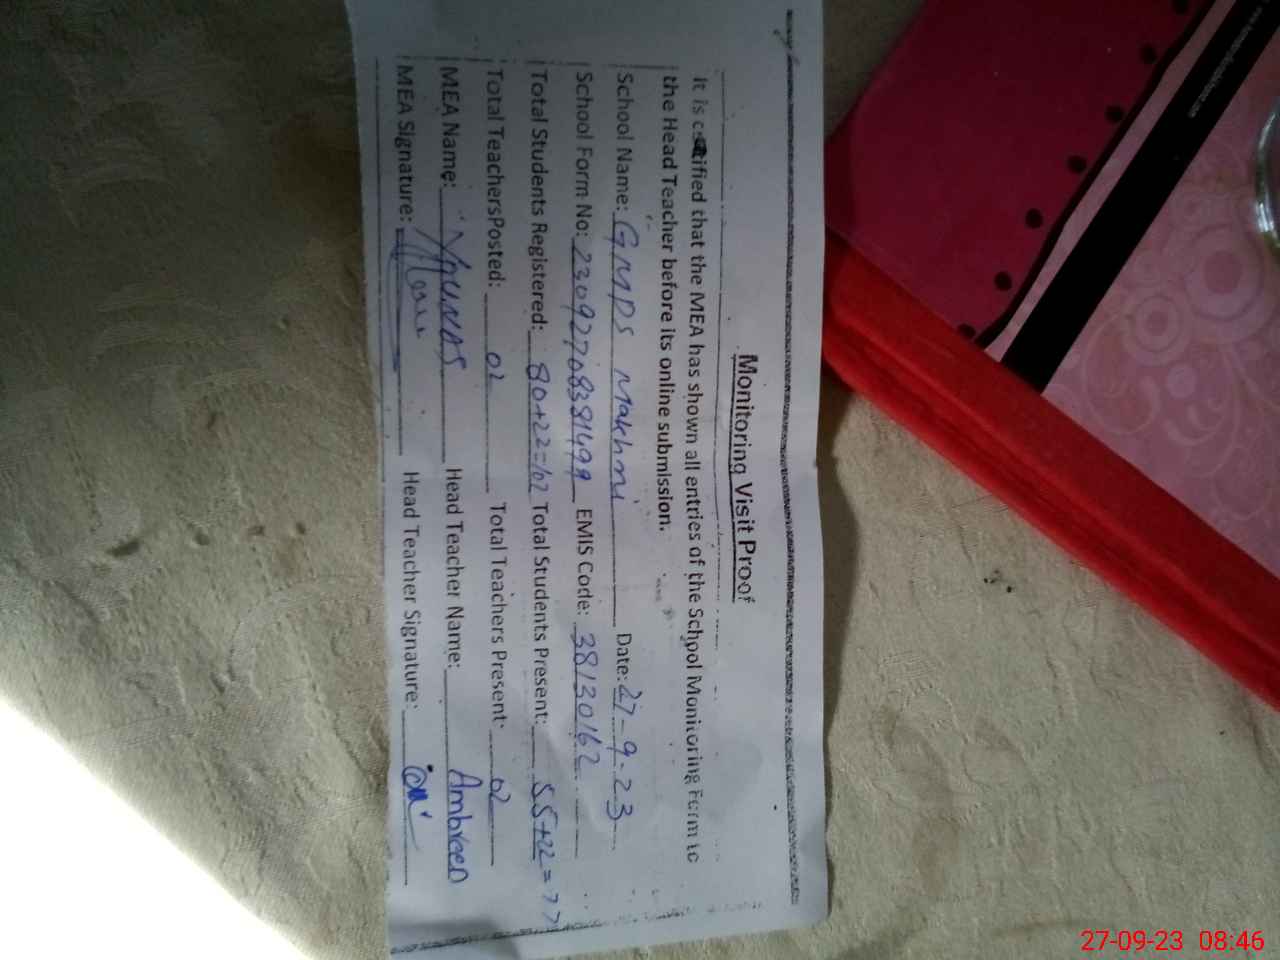 Monitoring Visit Proof
It is certified that the MEA has shown all entries of the School Monitoring Form to
the Head Teacher before its online submission.
School Name: GMPS Makhni Date: 27-9-23
School Form No: 2309270838149 EMIS Code: 38130162
Total Students Registered: 80+22=102 Total Students Present: 55+22=77
Total TeachersPosted: 02 Total Teachers Present: 02
MEA Name: YOUNAS Head Teacher Name: Ambreen
MEA Signature: Head Teacher Signature:
27-09-23 08:46